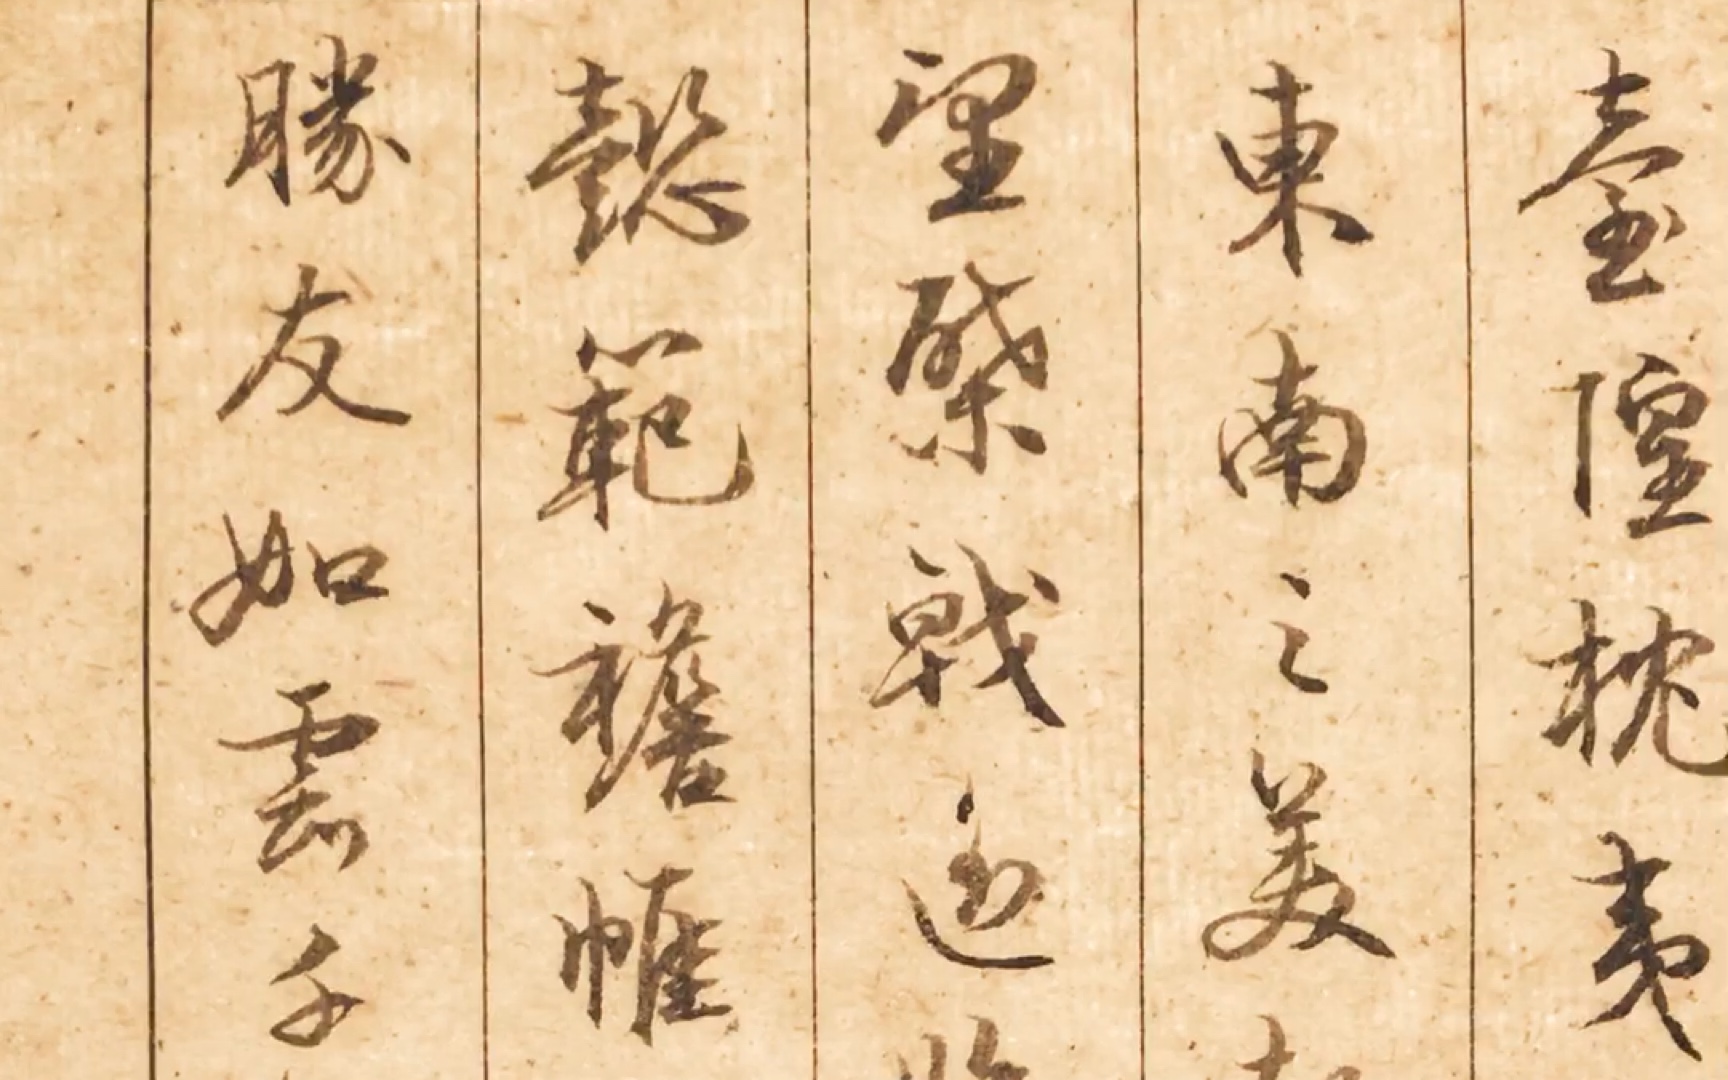 臺隍枕夷
東南之美
望棨戟遥臨
懿範襜帷
勝友如雲千